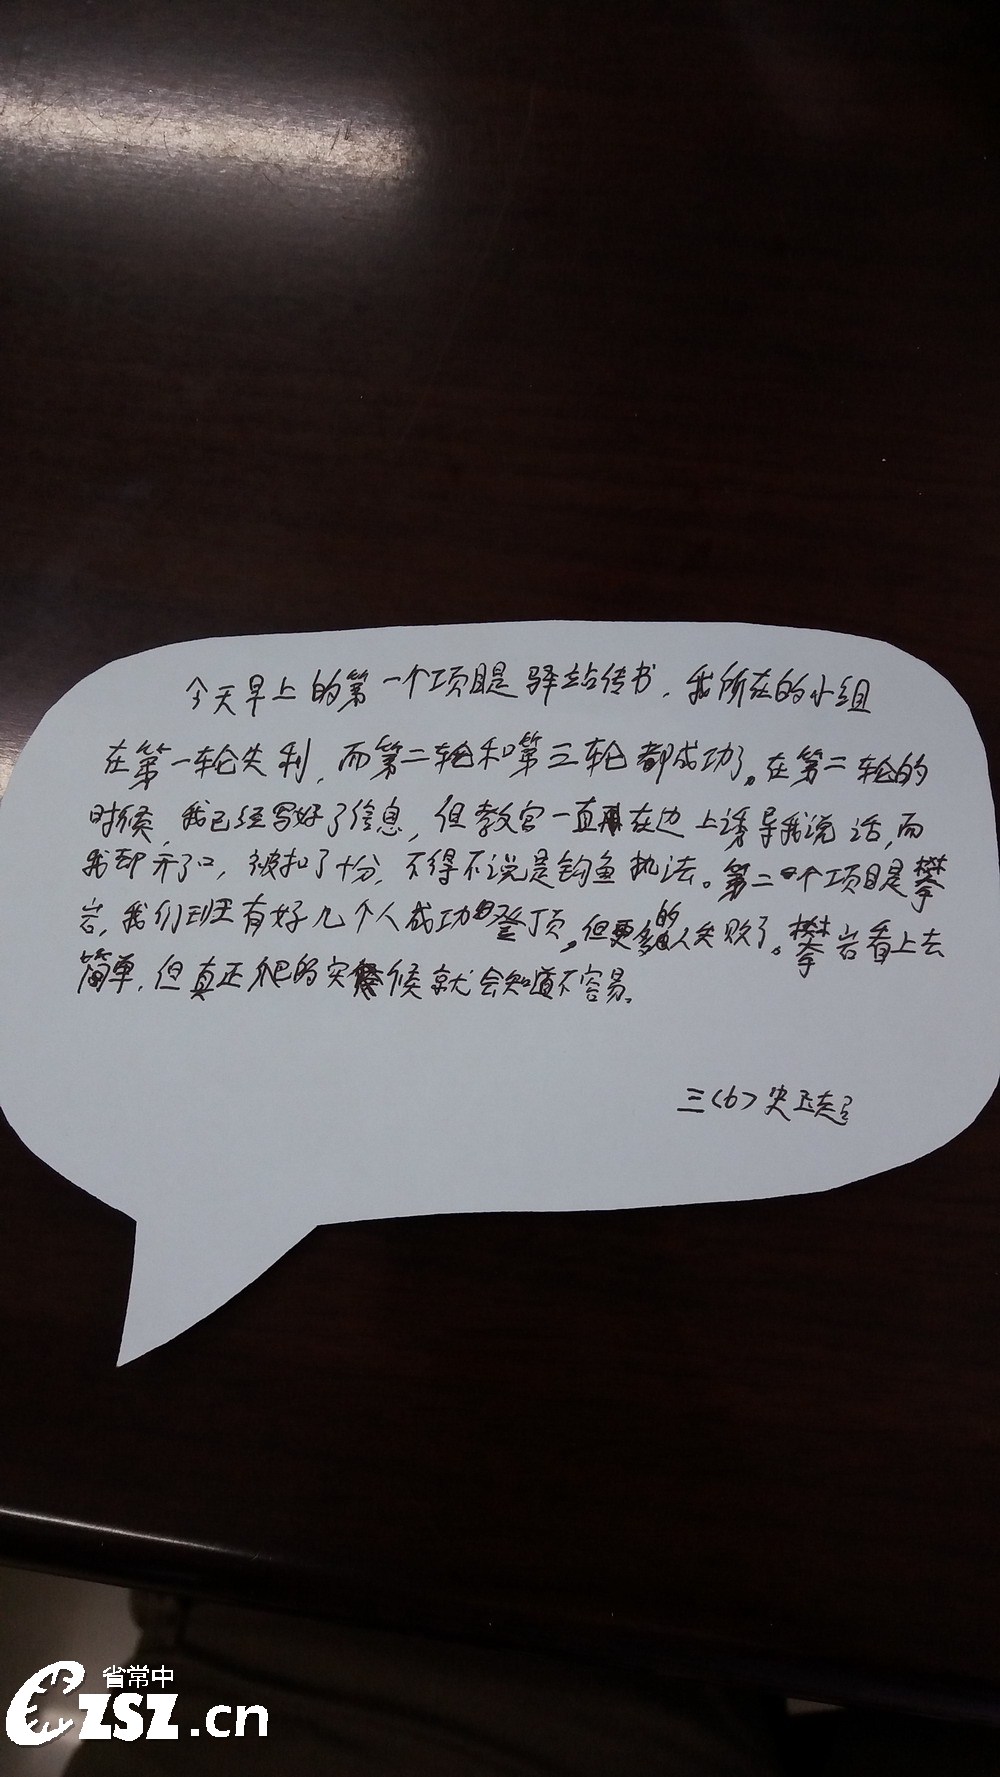 今天早上的第一个项目是驿站传书，我所在的小组
在第一轮失利，而第二轮和第三轮都成功了。在第二轮的
时候，我已经写好了信息，但教官一直在边上诱导我说话，而
我却开了口，被扣了十分，不得不说是钓鱼执法。第二个项目是攀
岩，我们班有好几个人成功登顶，但更多的人失败了。攀岩看上去
简单，但真正爬的时候就会知道不容易。
三（6）史正超
省常中
CZSZ.cn